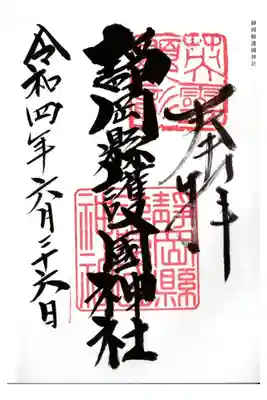 靜岡縣護國神社
奉拝
靜岡縣護國神社
令和四年六月二十六日
英靈
靜岡縣
神社